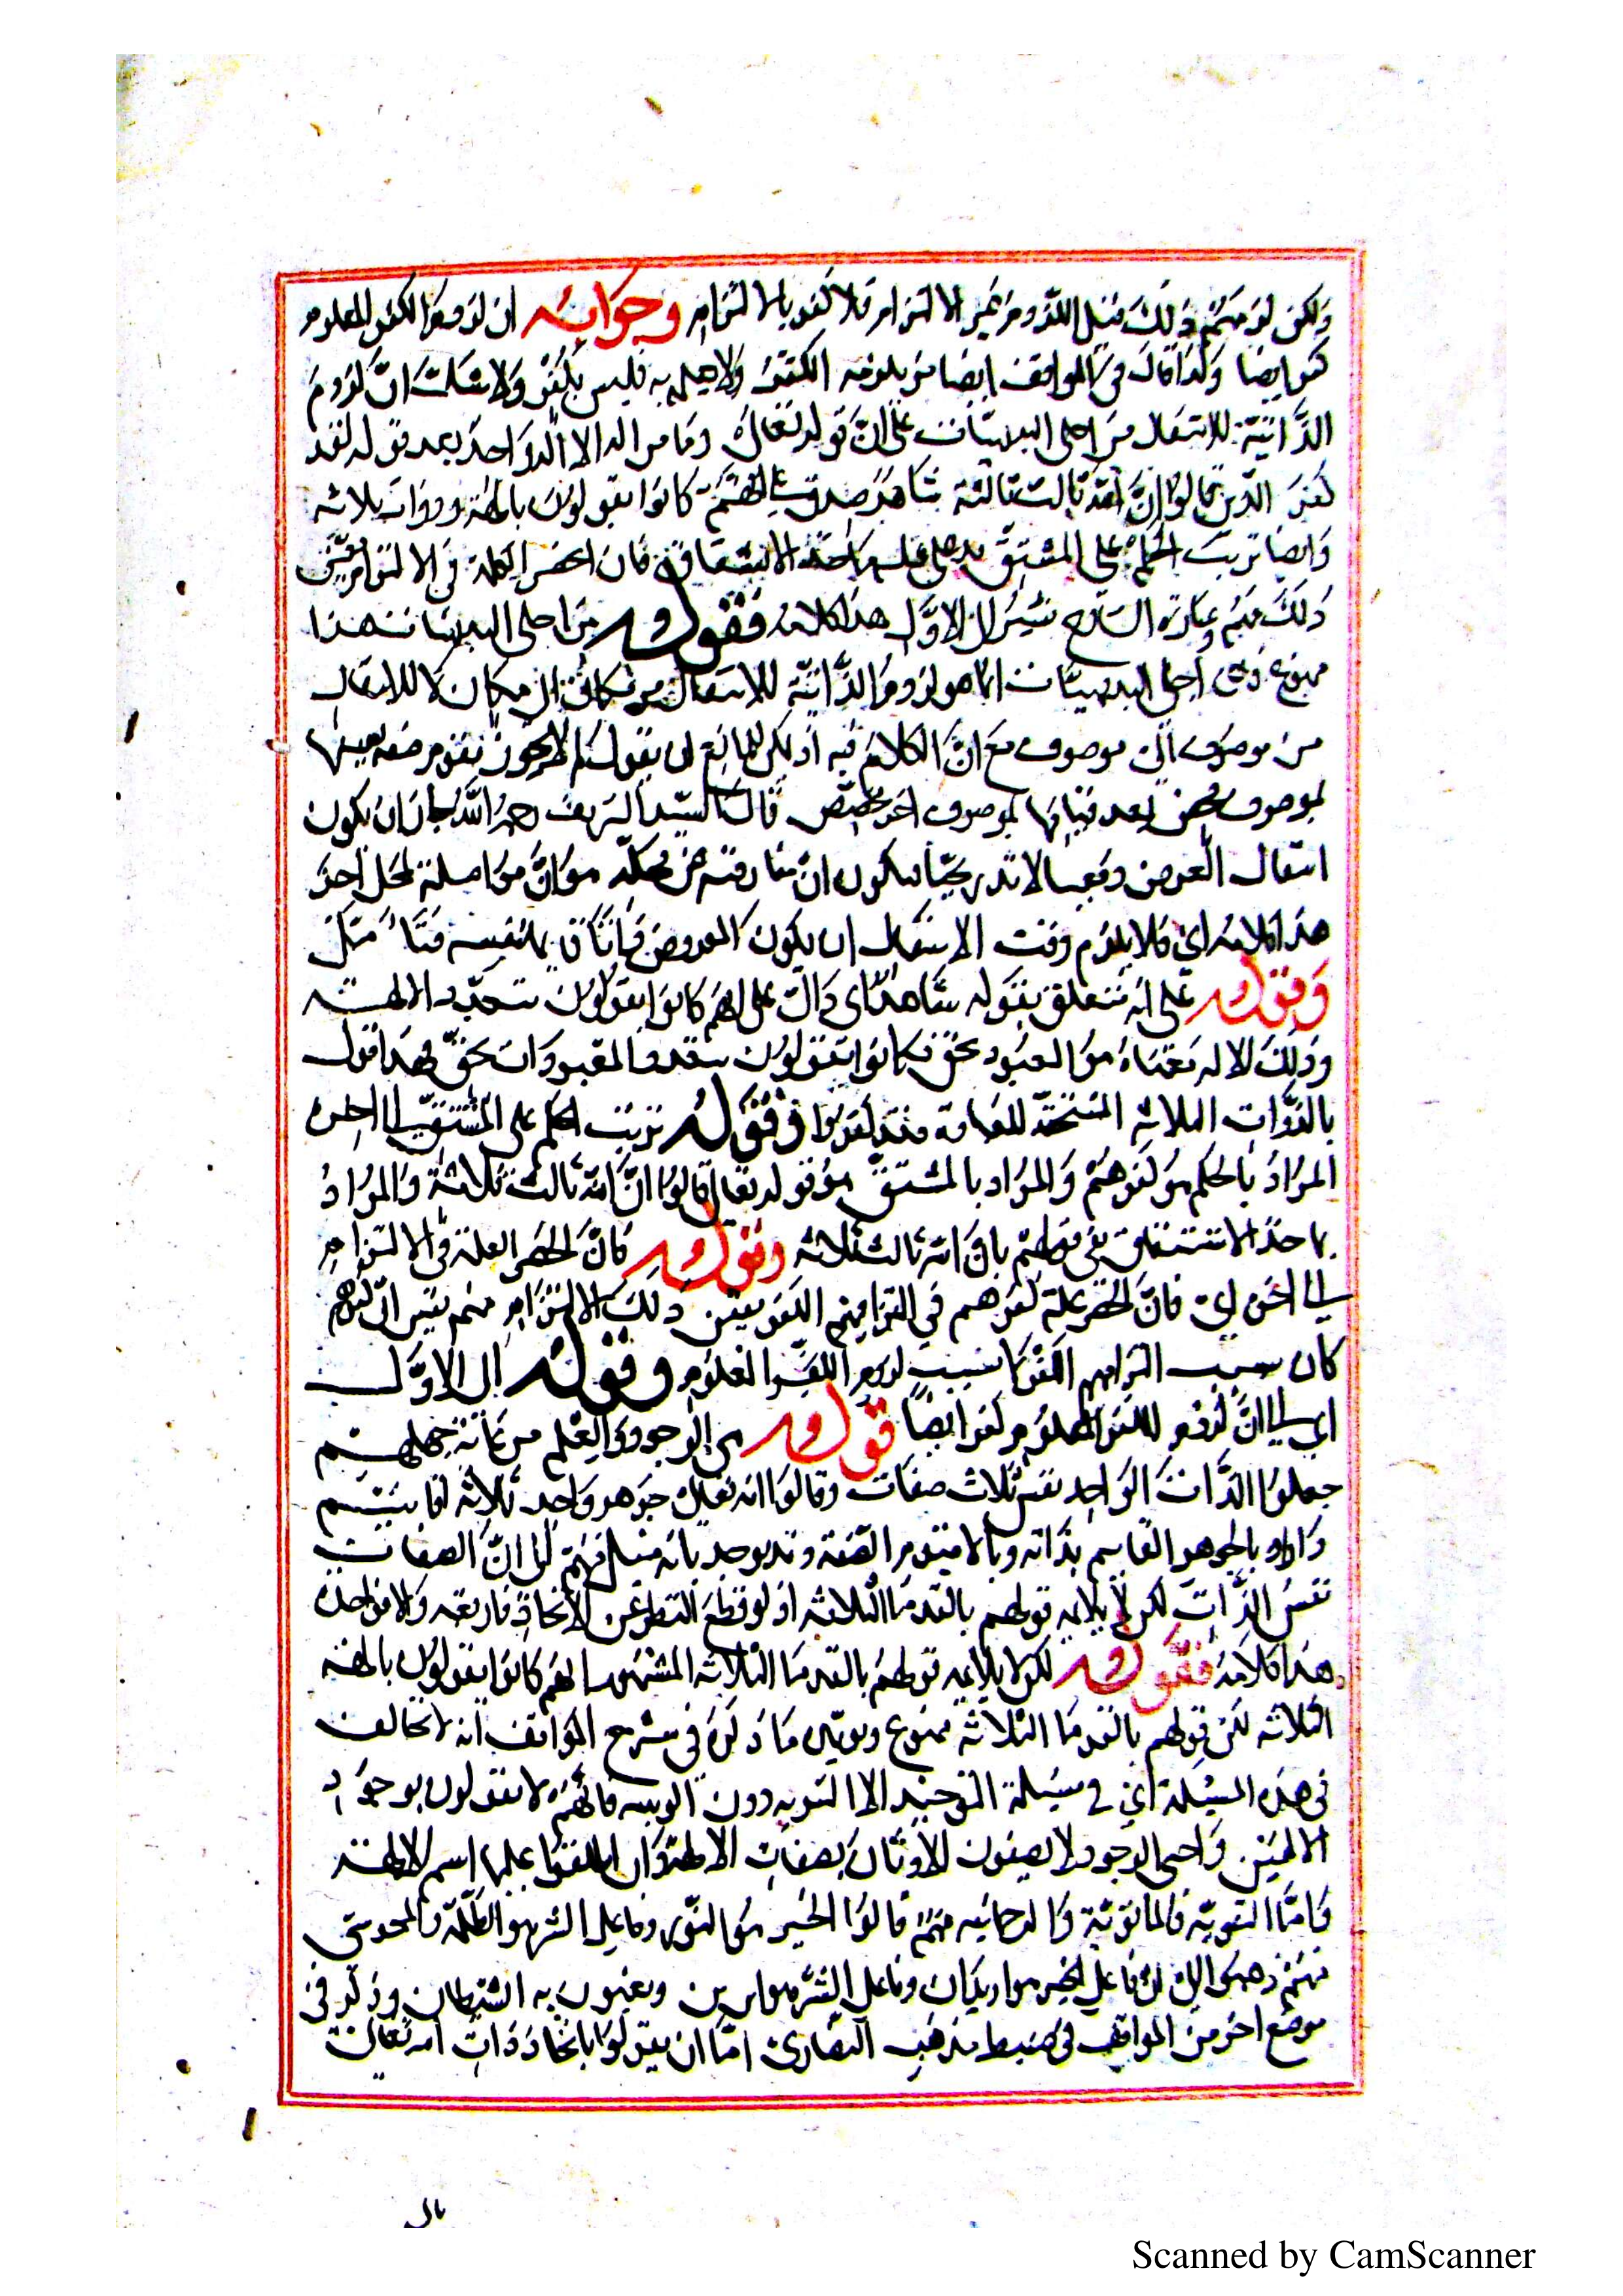 ولكن لزمهم ذلك قيل اللزوم غير الالتزام فلا كفر بالالتزام وجوابه ان لزوم الكفر المعلوم
كفر ايضا ولذا قال في المواقف ايضا من يلزمه الكفر ولا يعلم به فليس بكفر ولا شك ان لزوم
الذاتية للانتقال من اجلى البديهيات على ان قوله تعالى وما من اله الا اله واحد بعد قوله لقد
كفر الذين قالوا ان الله ثالث ثلاثة شاهد صدق على انهم كانوا يقولون بالهة وذوات ثلاثة
وايضا ترتب الحكم على المشتق يدل على علية مأخذ الاشتقاق فان انحصر العلة في الالتزام تعين
ذلك منهم وعبارة الشارح تشير الى الاول هذا كلامه فقوله من اجلى البديهيات هذا
ممنوع اجلى البديهيات انما هو لزوم الذاتية للانتقال من مكان الى مكان لا للانتقال
من موصوف الى موصوف مع ان الكلام فيه اذ يمكن للمانع ان يقول لم لا يجوز تقوم صفة بعينها
لموصوف بعد قيامها بموصوف اخر قال السيد الشريف رحمه الله يجوز ان يكون
انتقال العرض دفعيا لا تدريجيا فيكون ان مفارقته عن محله هو ان مواصلته لمحل اخر
هذا كلامه اي فلا يلزم وقت الانتقال ان يكون العرض قائما بنفسه فتأمل
وقوله على انه متعلق بقوله شاهد اي دال على انهم كانوا يقولون بتعدد الالهة
وذلك لاله معناه هو المعبود بحق فكانوا يقولون بتعدد المعبودات بحق فهذا قول
بالذوات الثلاثة المستحقة للعبادة فقد كفروا فقوله ترتب الحكم على المشتق الى اخره
المراد بالحكم هو كفرهم والمراد بالمشتق هو قوله تعالى قالوا ان الله ثالث ثلاثة والمراد
بمأخذ الاشتقاق هو قولهم بان الله ثالث ثلاثة وقوله فان انحصر العلة في الالتزام
الى اخره اي فان انحصر علة كفرهم في التزامهم الكفر تعين ذلك الالتزام منهم يعني ان كفرهم
كان بسبب التزامهم الكفر لا بسبب لزوم الكفر المعلوم وقوله الى الاول
اي الى ان لزوم الكفر المعلوم كفر ايضا قوله هي الوجود والعلم من غاية جهلهم
جعلوا الذات الواحد نفس ثلاث صفات وقالوا انه تعالى جوهر واحد ثلاثة اقانيم
وارادوا بالجوهر القائم بذاته وبالاقنوم الصفة وقد يوجه بانه ميل منهم الى ان الصفات
نفس الذات لكن لا يلائمه قولهم بالقدماء الثلاثة اذ لو قطع النظر عن الاتحاد فاربعة والا فواحد
هذا كلامه فقوله لكن لا يلائمه قولهم بالقدماء الثلاثة المشهور انهم كانوا يقولون بالهة
الثلاثة لكن قولهم بالقدماء الثلاثة ممنوع ويؤيده ما ذكر في شرح المواقف انه لا مخالف
في هذه المسئلة اي في مسئلة التوحيد الا الثنوية دون الوثنية فانهم لا يقولون بوجود
الالهين واجبي الوجود ولا يصفون الاوثان بصفات الالهة وان اطلقوا عليها اسم الالهة
واما الثنوية فالمانوية والديصانية منهم قالوا فاعل الخير هو النور وفاعل الشر هو الظلمة والمجوس
منهم ذهبوا الى ان فاعل الخير هو يزدان وفاعل الشر هو اهرمن ويعنون به الشيطان وذكر في
موضع اخر من المواقف في ضبط مذهب النصارى اما ان يقولوا باتحاد ذات الله تعالى
Scanned by CamScanner